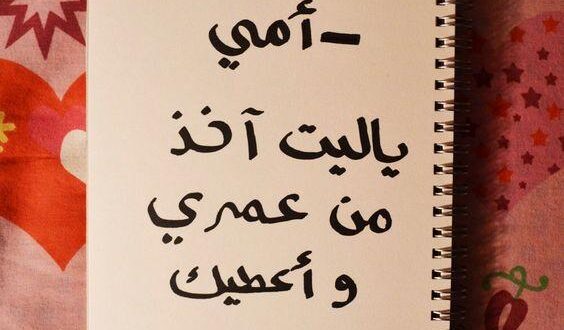 - أمي
ياليت آخذ
من عمري
و أعطيك